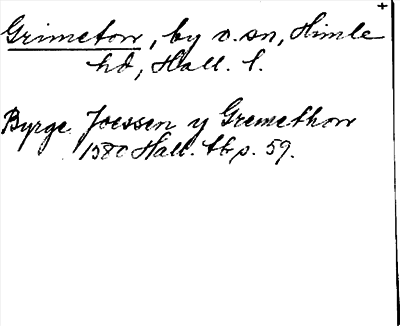 Grimeton, by o. sn, Himle
hd, Hall. l.
Byrge Joessen y Gremethon
1580 Hall. tb s. 59.